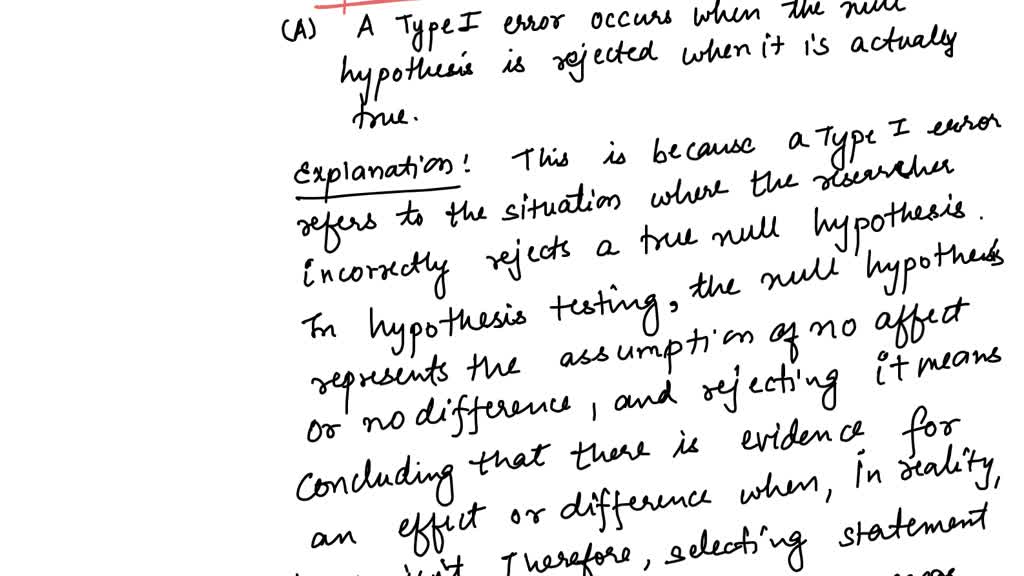 (A) A Type I error occurs when the null
hypothesis is rejected when it is actually
true.
Explanation: This is because a Type I error
refers to the situation where the researcher
incorrectly rejects a true null hypothesis.
In hypothesis testing, the null hypothesis
represents the assumption of no affect
or no difference, and rejecting it means
concluding that there is evidence for
an effect or difference when, in reality,
Therefore, selecting statement